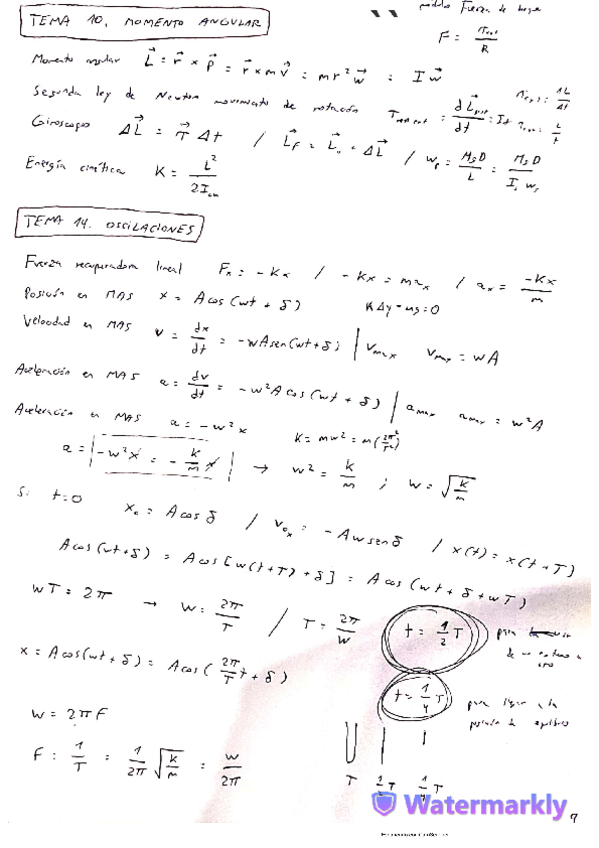 TEMA 10. MOMENTO ANGULAR
módulo Fuerza de
F =
R
Momento angular L⃗ = r⃗ × p⃗ = r⃗ × m v⃗ = m r² w⃗ = I w⃗
Segunda ley de Newton movimiento de rotación = dL⃗ / dt
Giroscopo ΔL⃗ = τ⃗ Δt / L⃗F = L⃗₀ + ΔL⃗ / wp = MgD / L = MgD / Is ws
Energía cinética K = L² / 2Icm
TEMA 14. OSCILACIONES
Fuerza recuperadora lineal Fx = -Kx / -Kx = max / ax = -Kx / m
Posición en MAS x = A cos(wt + δ) KΔy - mg = 0
Velocidad en MAS v = dx/dt = -wA sen(wt + δ) | vmax vmax = wA
Aceleración en MAS a = dv/dt = -w²A cos(wt + δ) | amax amax = w²A
Aceleración en MAS a = -w²x K = mw² = m(2π²/T²)
a = |-w²x = -K/m x| → w² = K/m ; w = √(K/m)
Si t=0 x₀ = A cos δ / v₀x = -Aw sen δ / x(t) = x(t+T)
A cos(wt+δ) = A cos[w(t+T) + δ] = A cos(wt + δ + wT)
wT = 2π → w = 2π/T / T = 2π/w
t = 1/2 T para
de un extremo a
otro
x = A cos(wt + δ) = A cos(2π/T t + δ)
t = 1/4 T
para llegar a la
posición de equilibrio
w = 2πF
F = 1/T = 1/2π √(K/m) = w/2π
T 1/2 T 1/4 T
Watermarkly
9